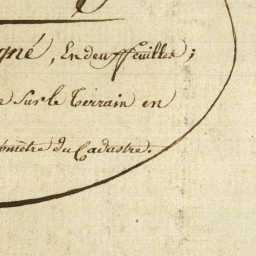 gné, En deux feuilles;
e Sur le Terrain en
omètre du Cadastre.